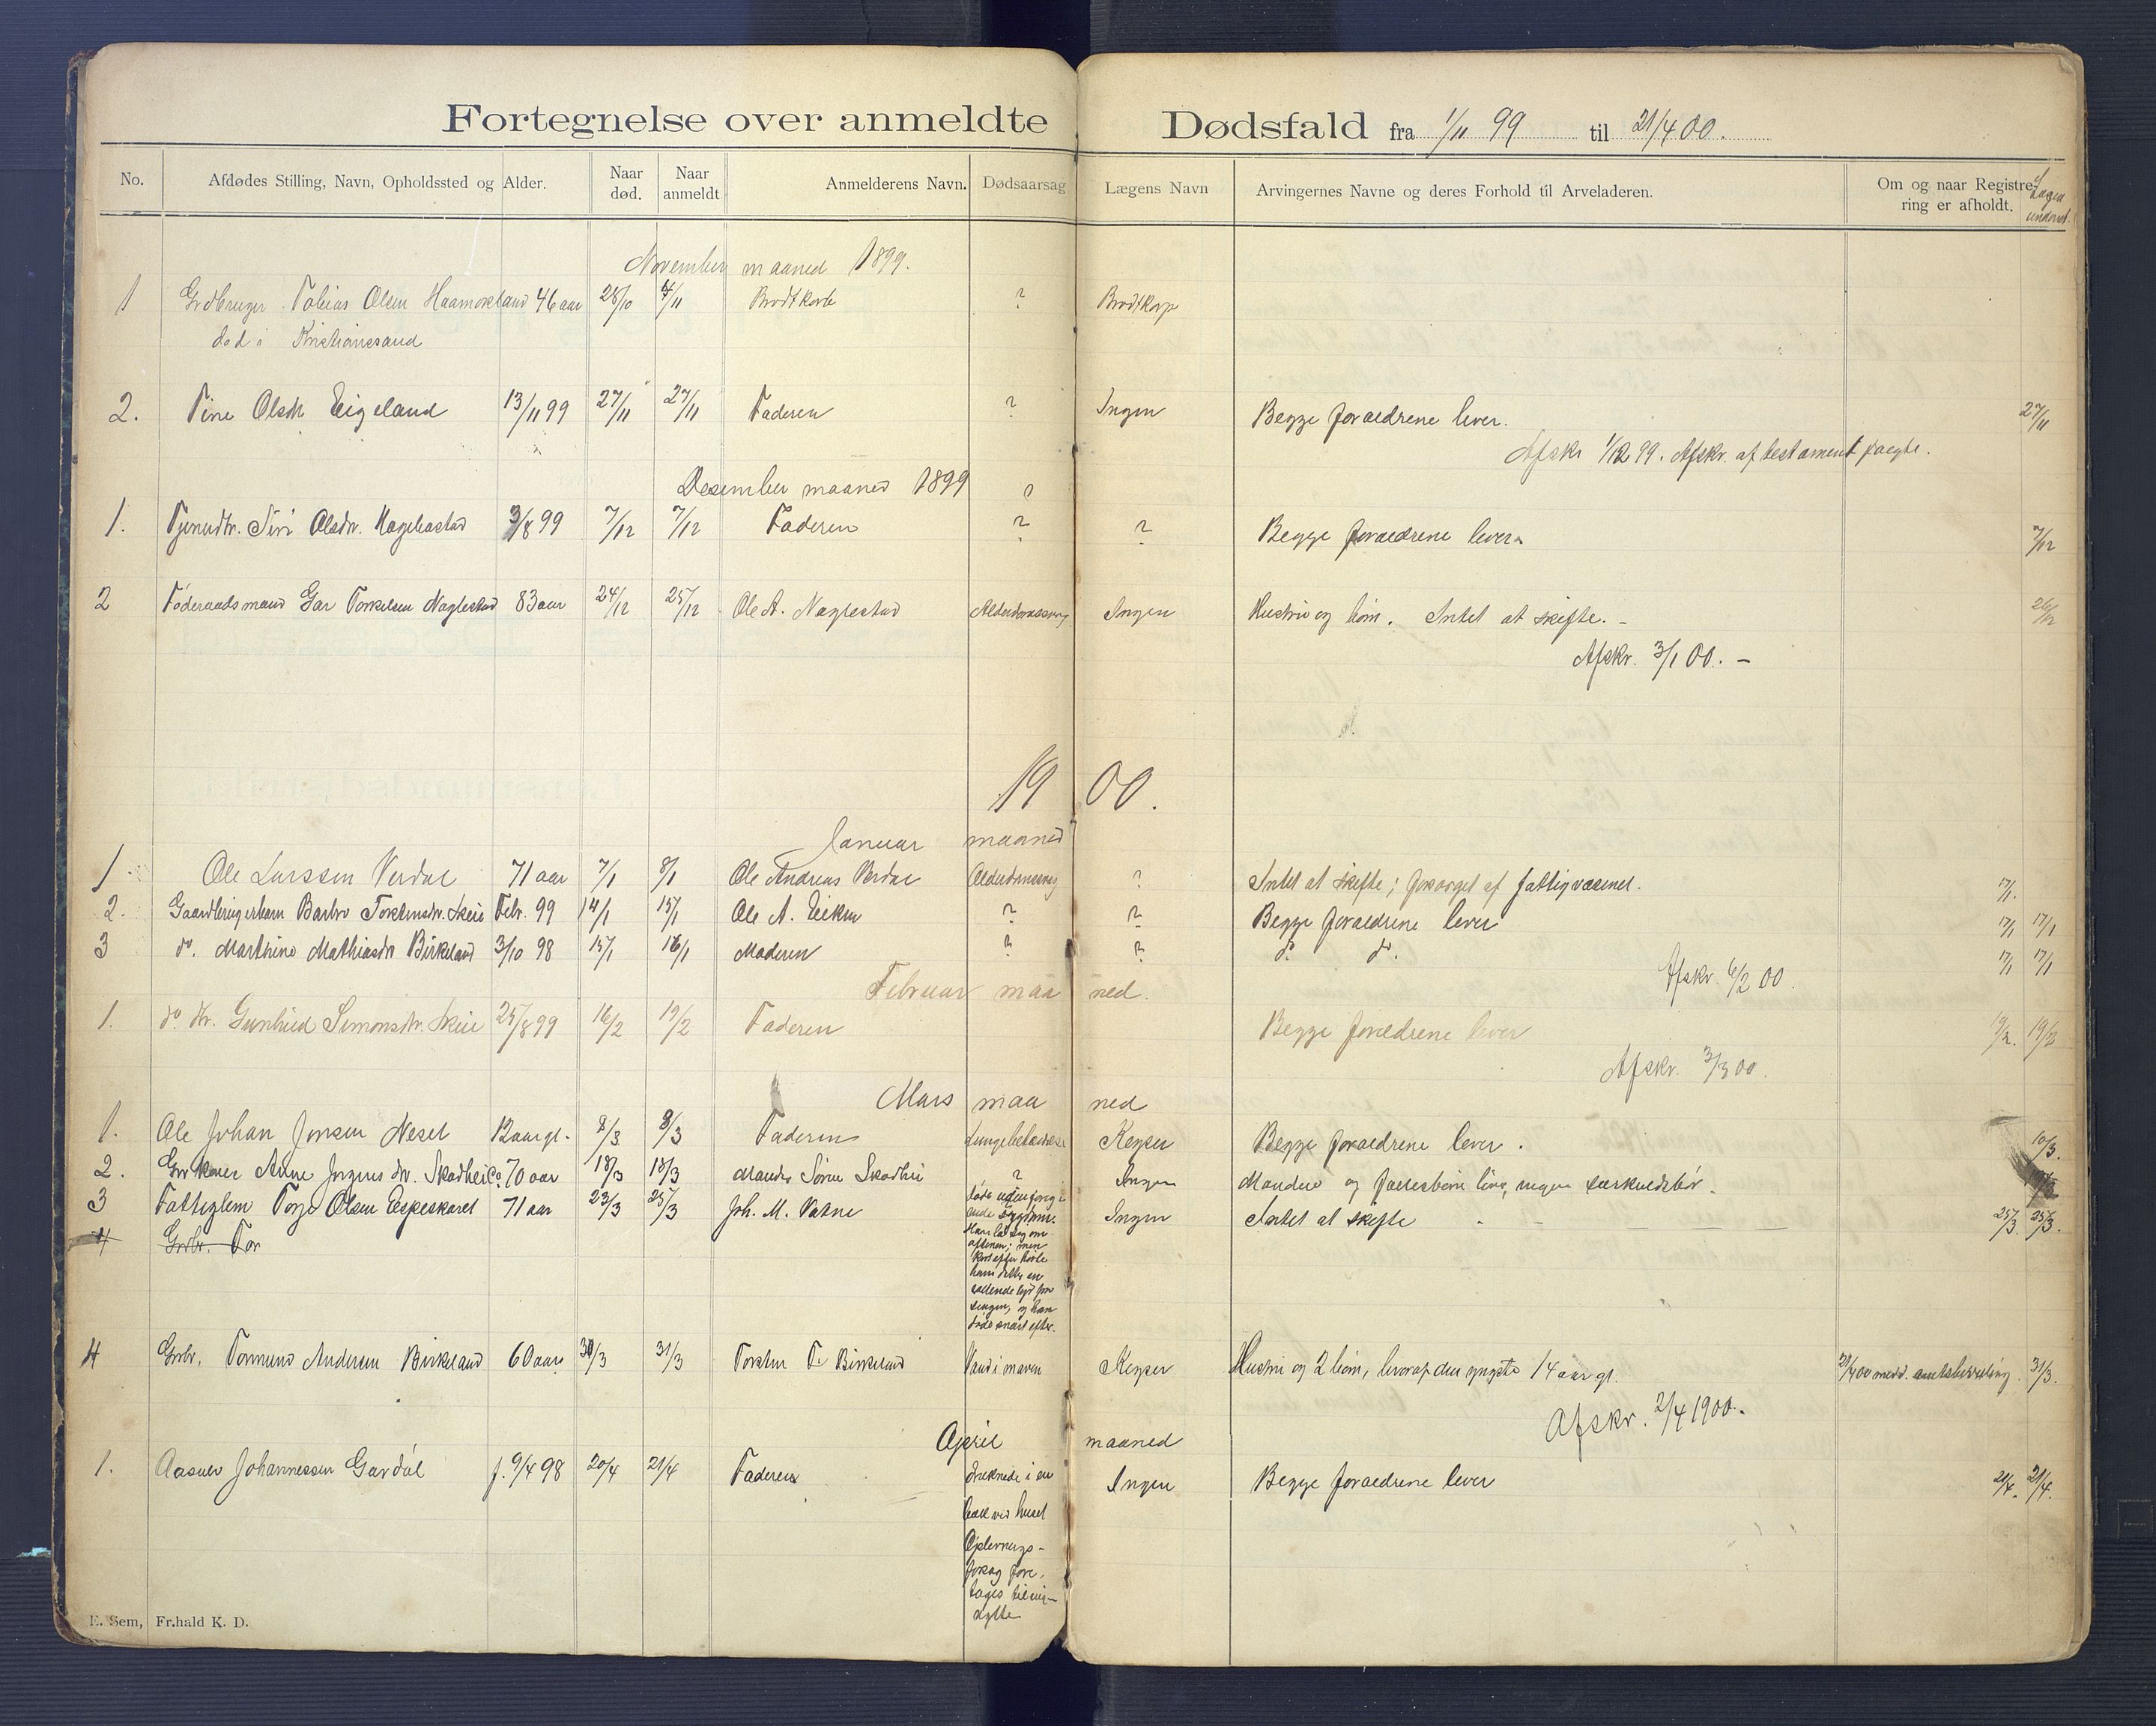 Fortegnelse over anmeldte Dødsfald fra 1/11 99 til 21/4 00.
No. Afdødes Stilling, Navn, Opholdssted og Alder. Naar død. Naar anmeldt Anmelderens Navn. Dødsaarsag Lægens Navn Arvingernes Navne og deres Forhold til Arveladeren. Om og naar Registrering er afholdt. Lægen underret.
November maaned 1899.
1 Grdbruger Tobias Olsen Haamokland 46 aar 28/10 4/11 Brodtkorb ? Brodtkorp
død i Kristianssand
2. Tine Olsdtr Eigeland 13/11 99 27/11 27/11 Faderen ? Ingen Begge foraeldrene lever. 27/11
Afskr 1/12 99. Afskr. af testament
Desember maaned 1899 ?
1. Siri Olsdtr. Hægebostad 3/8 99 7/12 7/12 Faderen ? ? Begge foraeldrene lever. 7/12
2 Føderaadsmand Gar Torkelsen Naglestad 83 aar 24/12 25/12 Ole A. Naglestad Ingen Hustru og børn. Intet at skifte. - 26/12
Afskr. 3/1 00. -
1900.
Januar maaned
1 Ole Larssen Verdal 71 aar 7/1 8/1 Ole Andreas Verdal ? Intet at skifte; forsørget af fattigvæsenet. 17/1.
2. Barbro Torstensdtr. Skeie Febr. 99 14/1 15/1 Ole A. Eiken ? ? Begge foraeldrene lever 17/1 17/1
3 do. Marthine Mathiasdtr Birkeland 3/10 98 15/1 16/1 Moderen ? ? do. do. 17/1 17/1
Afskr. 6/2 00.
Februar maaned.
1. do. dtr. Gunhild Simonsdtr. Skeie 25/8 99 16/2 19/2 Faderen Begge foreldrene lever 19/2. 19/2
Afskr. 3/3 00.
Mars maaned
1. Ole Johan Jonsen Nesel 12 aar gl. 8/3 8/3 Faderen Lungebetændelse Keyser Begge foraeldrene lever. 10/3.
2. Anne Jørgens dtr. Skadhei Ca 70 aar 18/3 18/3 Manden Sørin Skadhei ? Ingen Manden og fællesbørn lever, ingen særkuldsbør.
3 Fattiglem Torje Olsen Espeskaret 71 aar 23/3 25/3 Joh. M. Vatne Døde uden foregaaende sygdom. Ingen Intet at skifte - - 25/3. 25/3.
4 Grbr. Tor
Han la sig om
aftenen; men
kort efter hørte
ham
lyd fra
sengen, og han
døde snart efter.
4 Grbr. Tormund Andersen Birkeland 60 aar 30/3 31/3 Torsten T. Birkeland Vand i maven Keyser Hustru og 2 børn, hvoraf den yngste 14 aar gl. 21/4 00 medd. 31/3.
Afskr. 2/4 1900.
April maaned
1. Aasulv Johannessen Gardøl f. 9/4 98 20/4 21/4 Faderen Druknede i en Ingen Begge foraeldrene lever 21/4. 21/4.
bæk ved huset
Oplivnings-
forsøg fore-
toges til ingen
nytte
E. Sem, Fr.hald K. D.